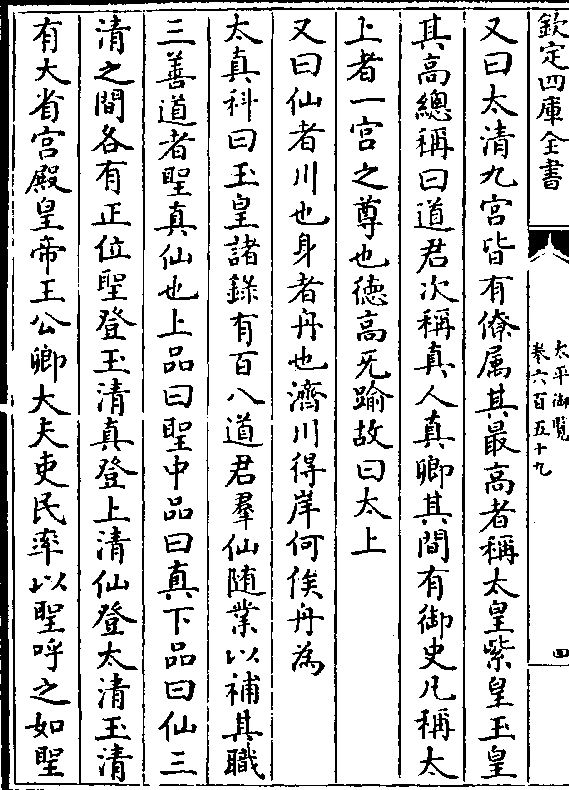 欽定四庫全書
太平御覧
卷六百五十九
四
又曰太清九宫皆有僚属其最高者稱太皇紫皇玉皇
其高總稱曰道君次稱真人真卿其間有御史凡稱太
上者一宫之尊也徳高旡踰故曰太上
又曰仙者川也身者舟也濟川得岸何俟舟為
太真科曰玉皇諸錄有百八道君羣仙随業以補其職
三善道者聖真仙也上品曰聖中品曰真下品曰仙三
清之間各有正位聖登玉清真登上清仙登太清玉清
有大省宫殿皇帝王公卿大夫吏民率以聖呼之如聖